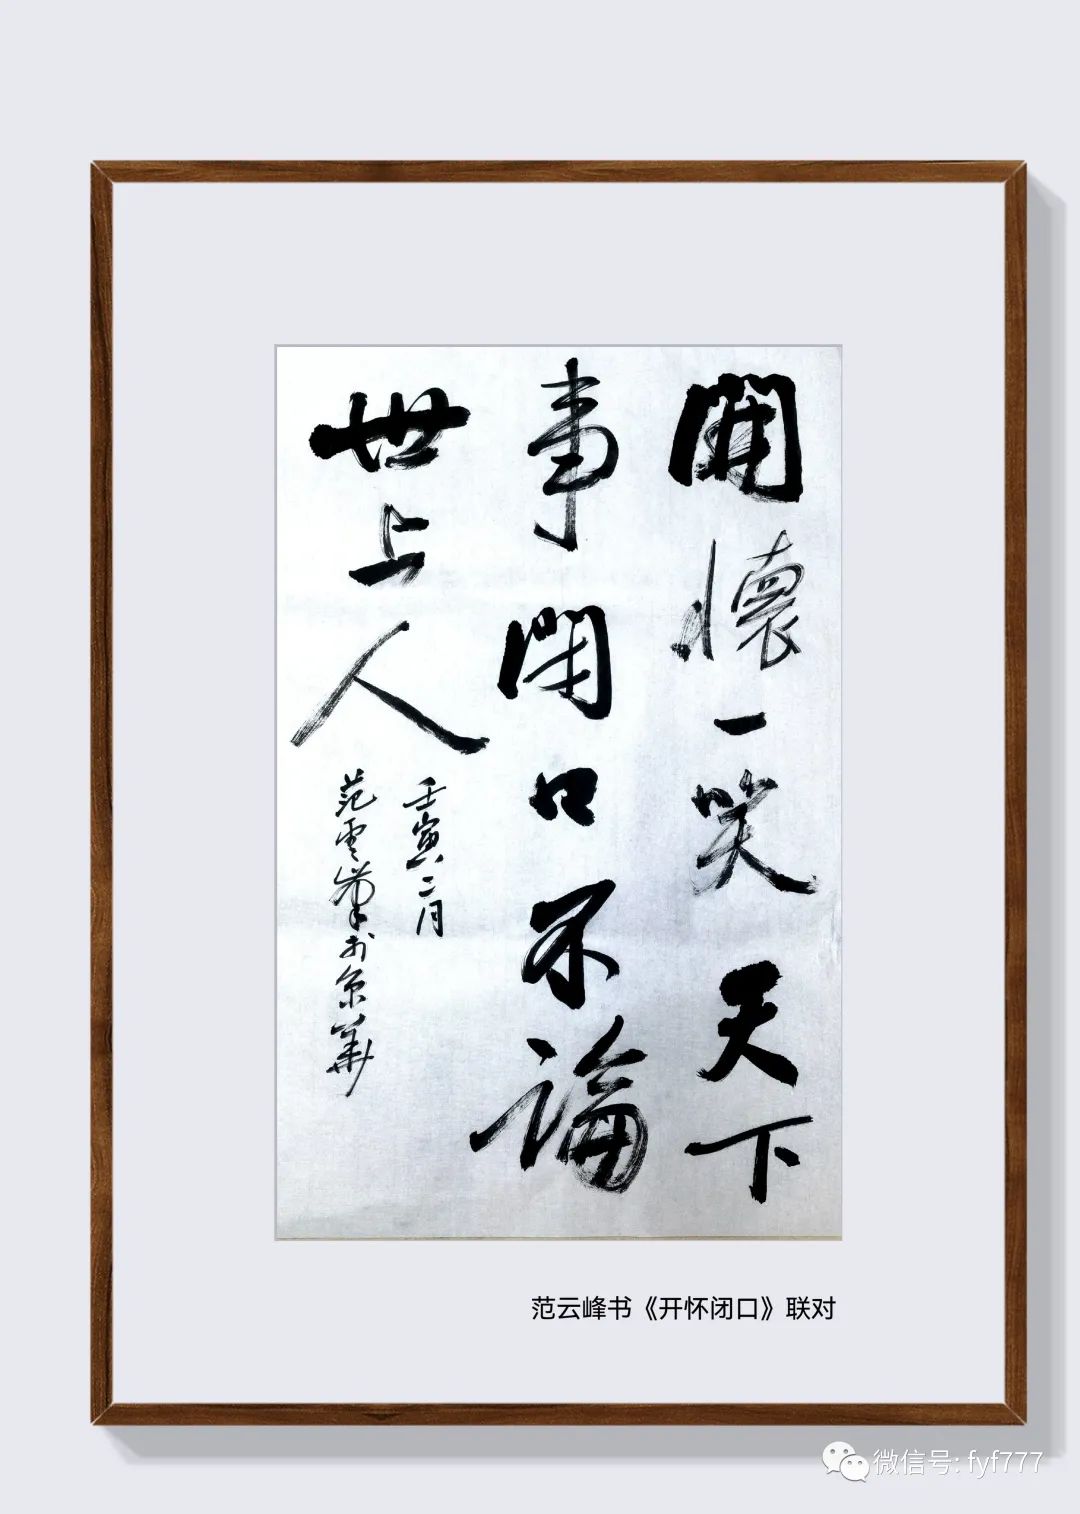 開懷一笑天下
事閉口不論
世上人
壬寅二月
范雲峯書於京華
范云峰书《开怀闭口》联对
微信号: fyf777